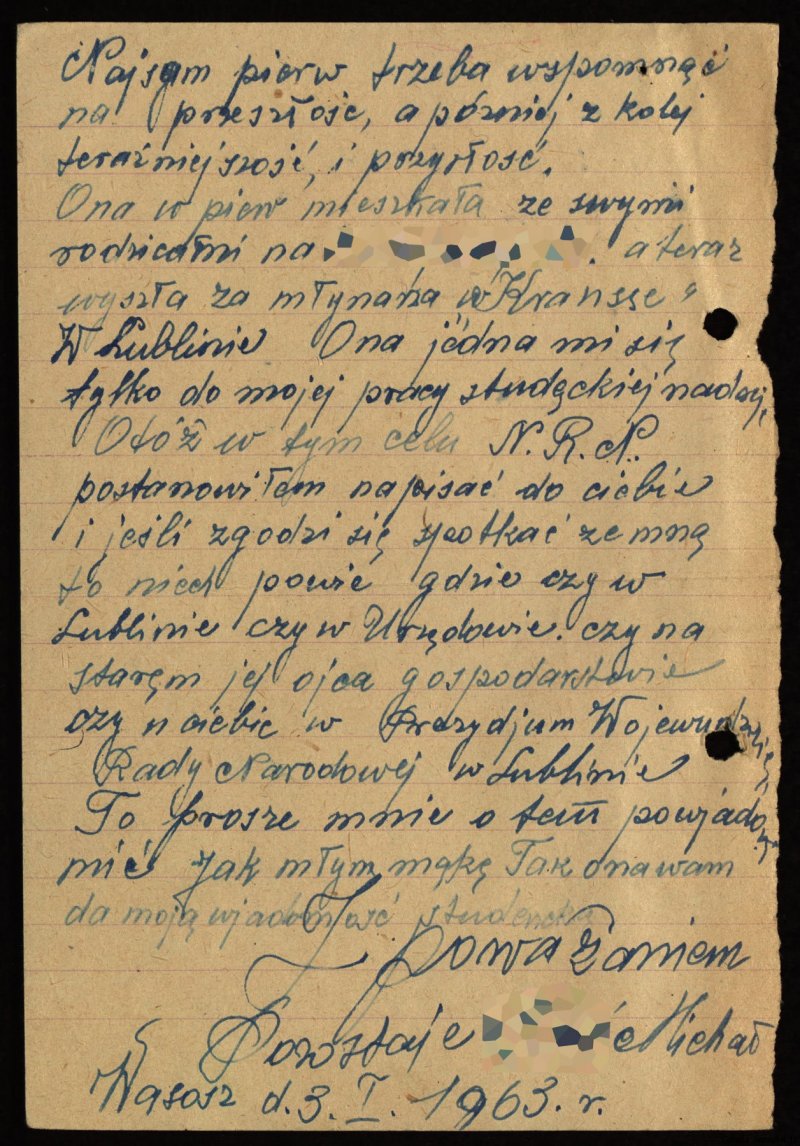 Najsam pierw trzeba wspomnąć
na preszłość, a pózniej z kolej
teraźniejszość, i przyłość.
Ona w pierw mieszkała ze swymi
rodzicami na . a teraz
wyszła za młynaża w
W Lublinie Ona jedna mi się
tylko do mojej pracy studęckiej nadaj,
Otóż w tym celu N. R. N.
postanowiłem napisać do ciebie
i jeśli zgodzi się spotkać ze mną
to niech powić gdzie czy w
Lublinie czy w Urzędowie. czy na
staręm jej ojca gospodarstwie
czy u ciebie w Prezydjum
Rady Narodowej w Lublinie
To prosze mnie o tem powjado
mić Jak młym mąkę Tak ona wam
da moją wjadomość studencką
Z Poważaniem
Pozostaje Michał
Wąsosz d. 3. I. 1963. r.